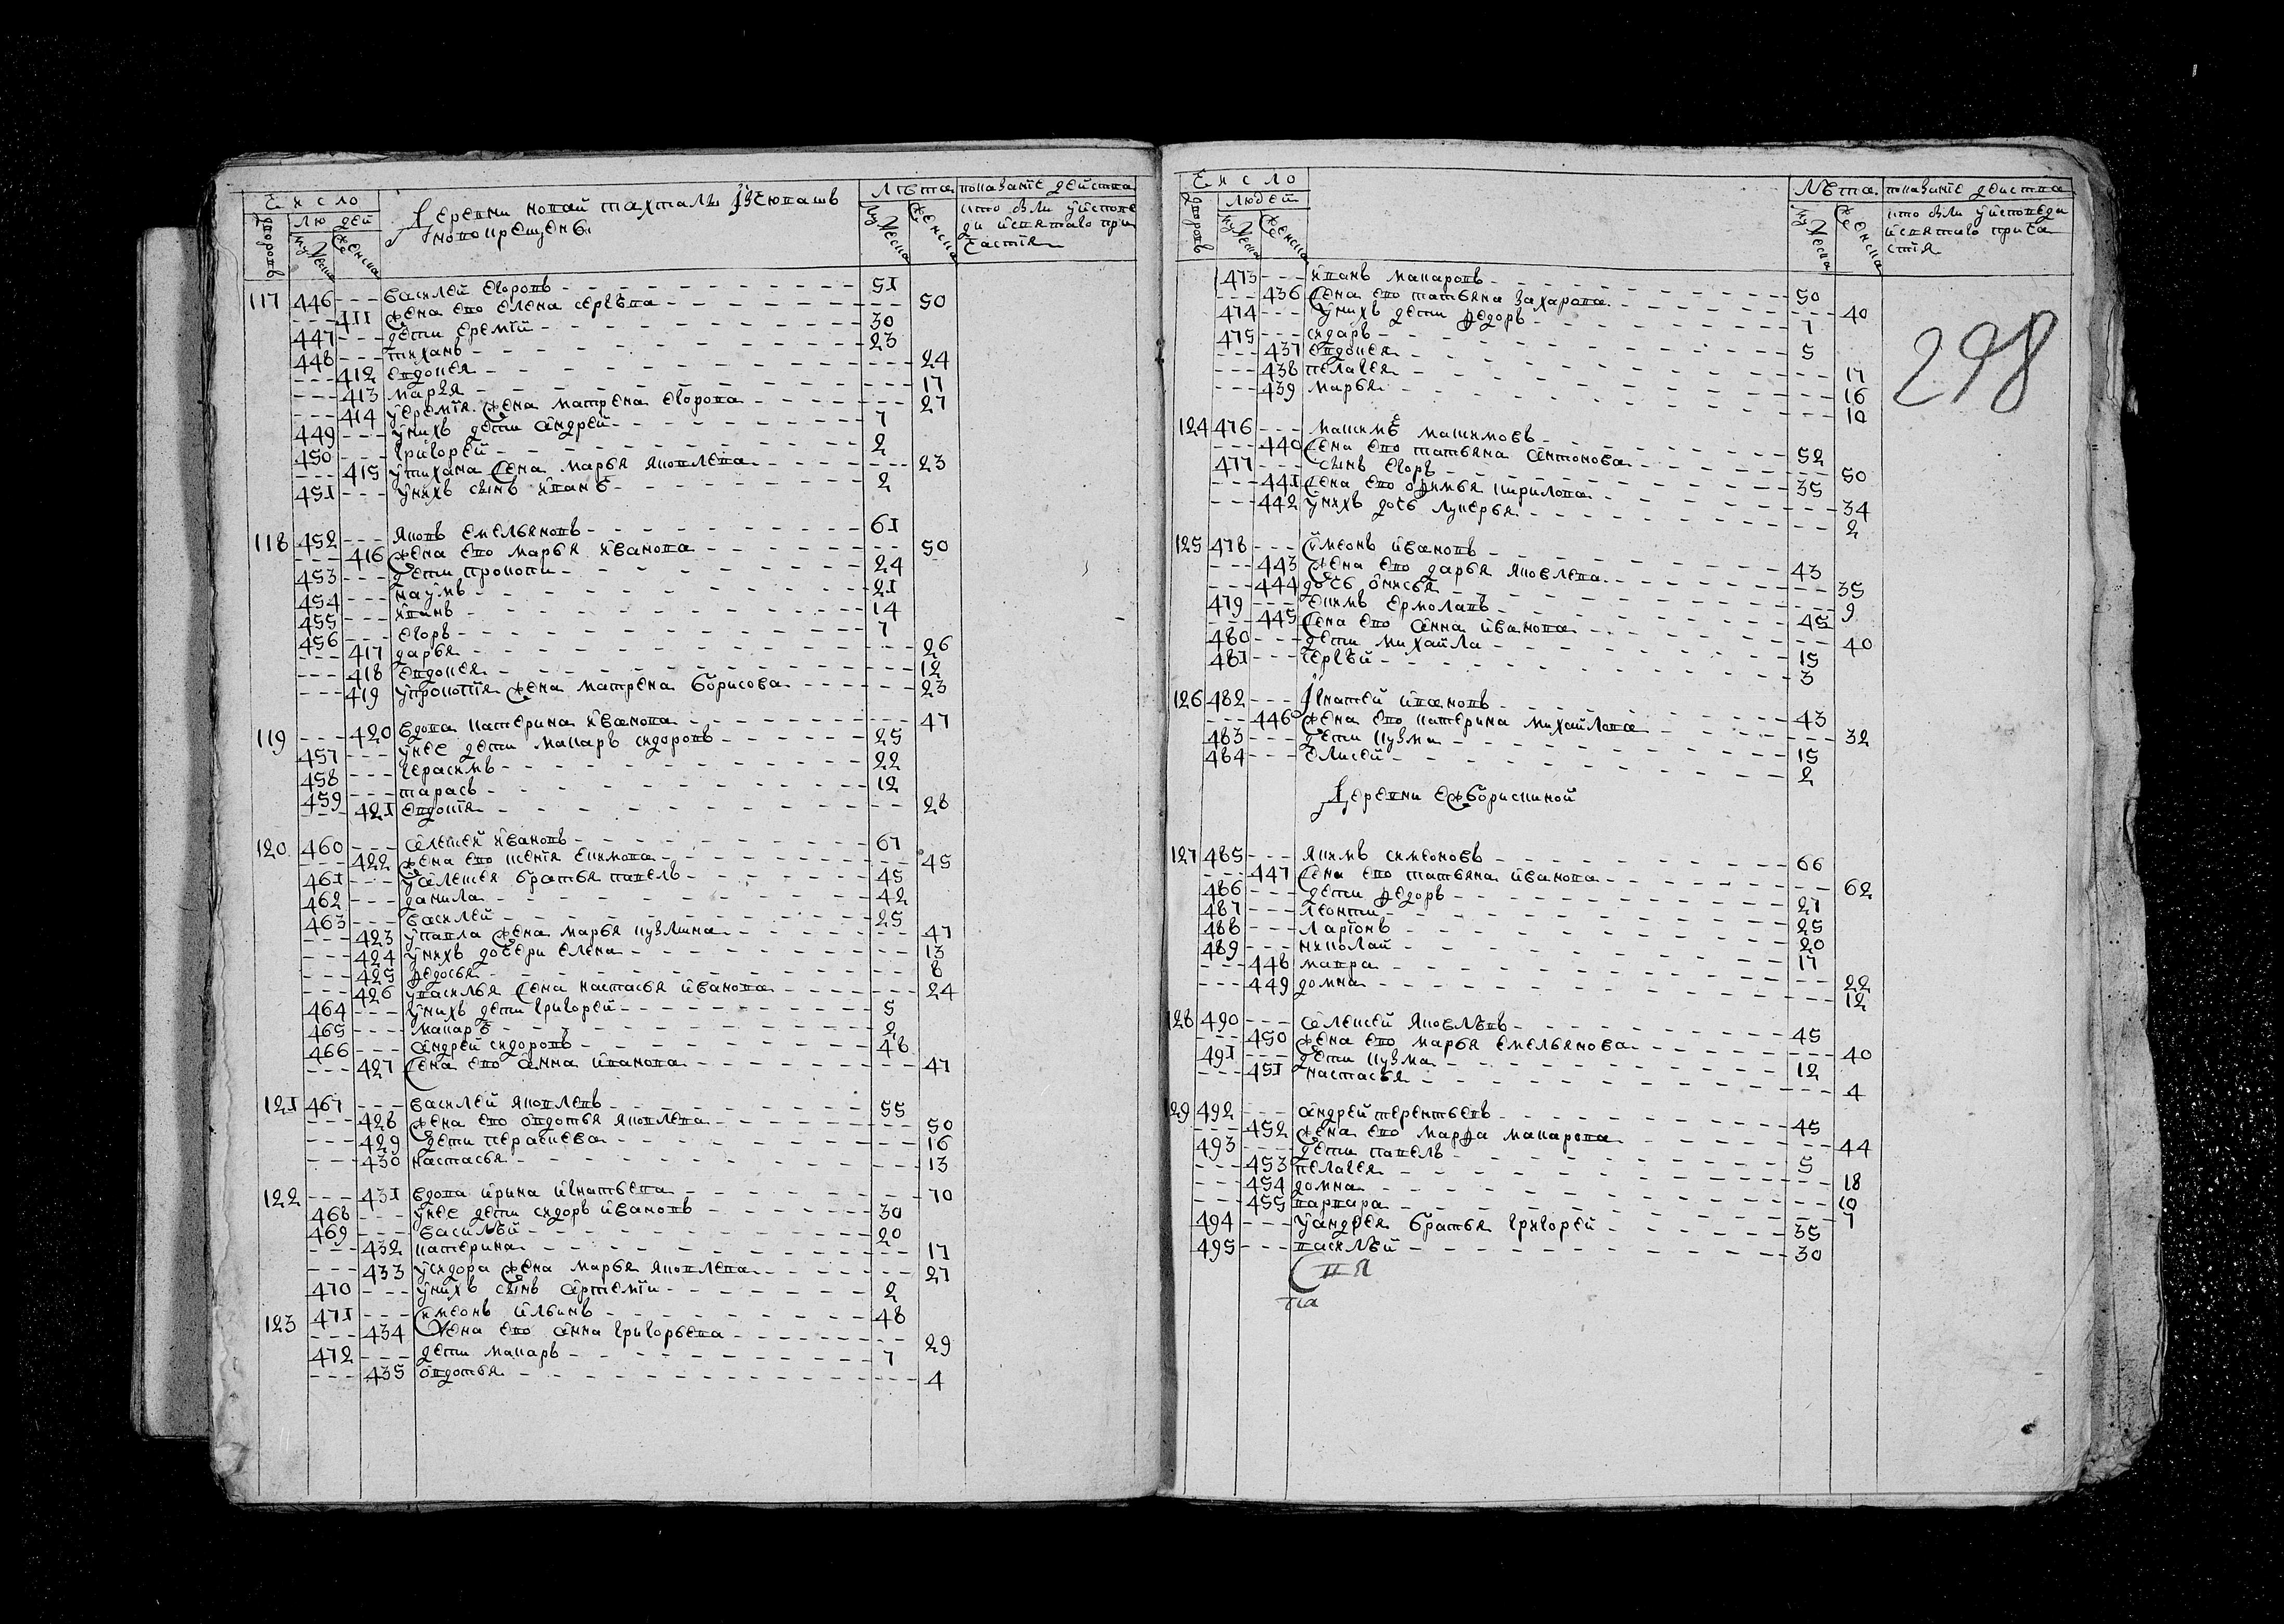 Число
Лета показание действа
дворовъ
людей
Деревни новой тахталы Ізчювашъ
мужеска
женска
новокрещены
мужеска
женска
кто были уисповеди исвятаго причастия
117 446 --- василей егоровъ 51
--- 411 жена ево елена сергѣва 50
447 --- дети еремѣй 30
448 --- тиханъ 23
--- 412 евдокея 24
--- 413 марья 17
--- 414 уеремѣя жена матрена егорова 27
449 --- унихъ дети андрей 7
450 --- григорей 2
--- 415 утихана жена марья яковлева 23
451 --- унихъ сынъ иванъ 2
118 452 --- яковъ емельяновъ 61
--- 416 жена ево марья иванова 50
453 --- дети прокопи 24
454 --- наумъ 21
455 --- иванъ 14
456 --- егоръ 7
--- 417 дарья 26
--- 418 евдокея 12
--- 419 упрокопїя жена матрена борисова 23
119 --- 420 вдова катерина иванова 47
457 --- унее дети макаръ сидоровъ 25
458 --- герасимъ 22
459 --- тарасъ 12
--- 421 евдокїя 28
120 460 --- алексей ивановъ 67
--- 422 жена ево ксенїя екимова 45
461 --- уалексея братья павелъ 45
462 --- данила 42
463 --- василей 25
--- 423 упавла жена марья кузмина 47
--- 424 унихъ дочери елена 13
--- 425 федосья 8
--- 426 увасилья жена настасья иванова 24
464 --- унихъ дети григорей 5
465 --- макаръ 2
466 --- андрей сидоровъ 48
--- 427 жена ево анна иванова 47
121 467 --- василей яковлевъ 55
--- 428 жена ево овдотья яковлева 50
--- 429 дети параскева 16
--- 430 настасья 13
122 --- 431 вдова ирина игнатьева 70
468 --- унее дети сидоръ ивановъ 30
469 --- василѣй 20
--- 432 катерина 17
--- 433 усидора жена марья яковлева 27
470 --- унихъ сынъ артемїи 2
123 471 --- симеонъ ильинъ 48
--- 434 жена ево анна григорьева 29
472 --- дети макаръ 7
--- 435 овдотья 4
Число
Лѣта показанїе действа
дворовъ
людей
мужеска
женска
мужеска
женска
кто были уисповеди исвятаго причастїя
298
473 --- иванъ макаровъ 50
--- 436 жена ево татьяна захарова 40
474 --- унихъ дети федоръ 7
475 --- сидаръ 5
--- 437 евдокея 17
--- 438 пелагея 16
--- 439 марья 10
124 476 --- макимъ макимовъ 52
--- 440 жена ево татьяна антонова 50
477 --- сынъ егоръ 35
--- 441 жена ево офимья кирилова 34
--- 442 унихъ дочь лукерья 2
125 478 --- симеонъ ивановъ 43
--- 443 жена ево дарья яковлева 35
--- 444 дочь онисья 9
479 --- екимъ ермолавъ 45
--- 445 жена ево анна иванова 40
480 --- дети михайла 15
481 --- сергѣй 3
126 482 --- Игнатей ивановъ 43
--- 446 жена ево катерина михайлова 32
483 --- дети кузма 15
484 --- елисей 2
Деревни ежборискиной
127 485 --- якимъ симеоновъ 66
--- 447 жена ево татьяна иванова 62
486 --- дети федоръ 27
487 --- леонти 25
488 --- ларїонъ 20
489 --- николай 17
--- 448 мавра 22
--- 449 домна 12
128 490 --- алексей яковлѣвъ 45
--- 450 жена ево марья емельянова 40
491 --- дети кузма 12
--- 451 настасья 4
129 492 --- андрей терентьевъ 45
--- 452 жена ево марфа макарова 44
493 --- дети павелъ 5
--- 453 пелагея 18
--- 454 домна 10
--- 455 варвара 7
494 --- уандрея братья григорей 35
495 --- василѣй 30